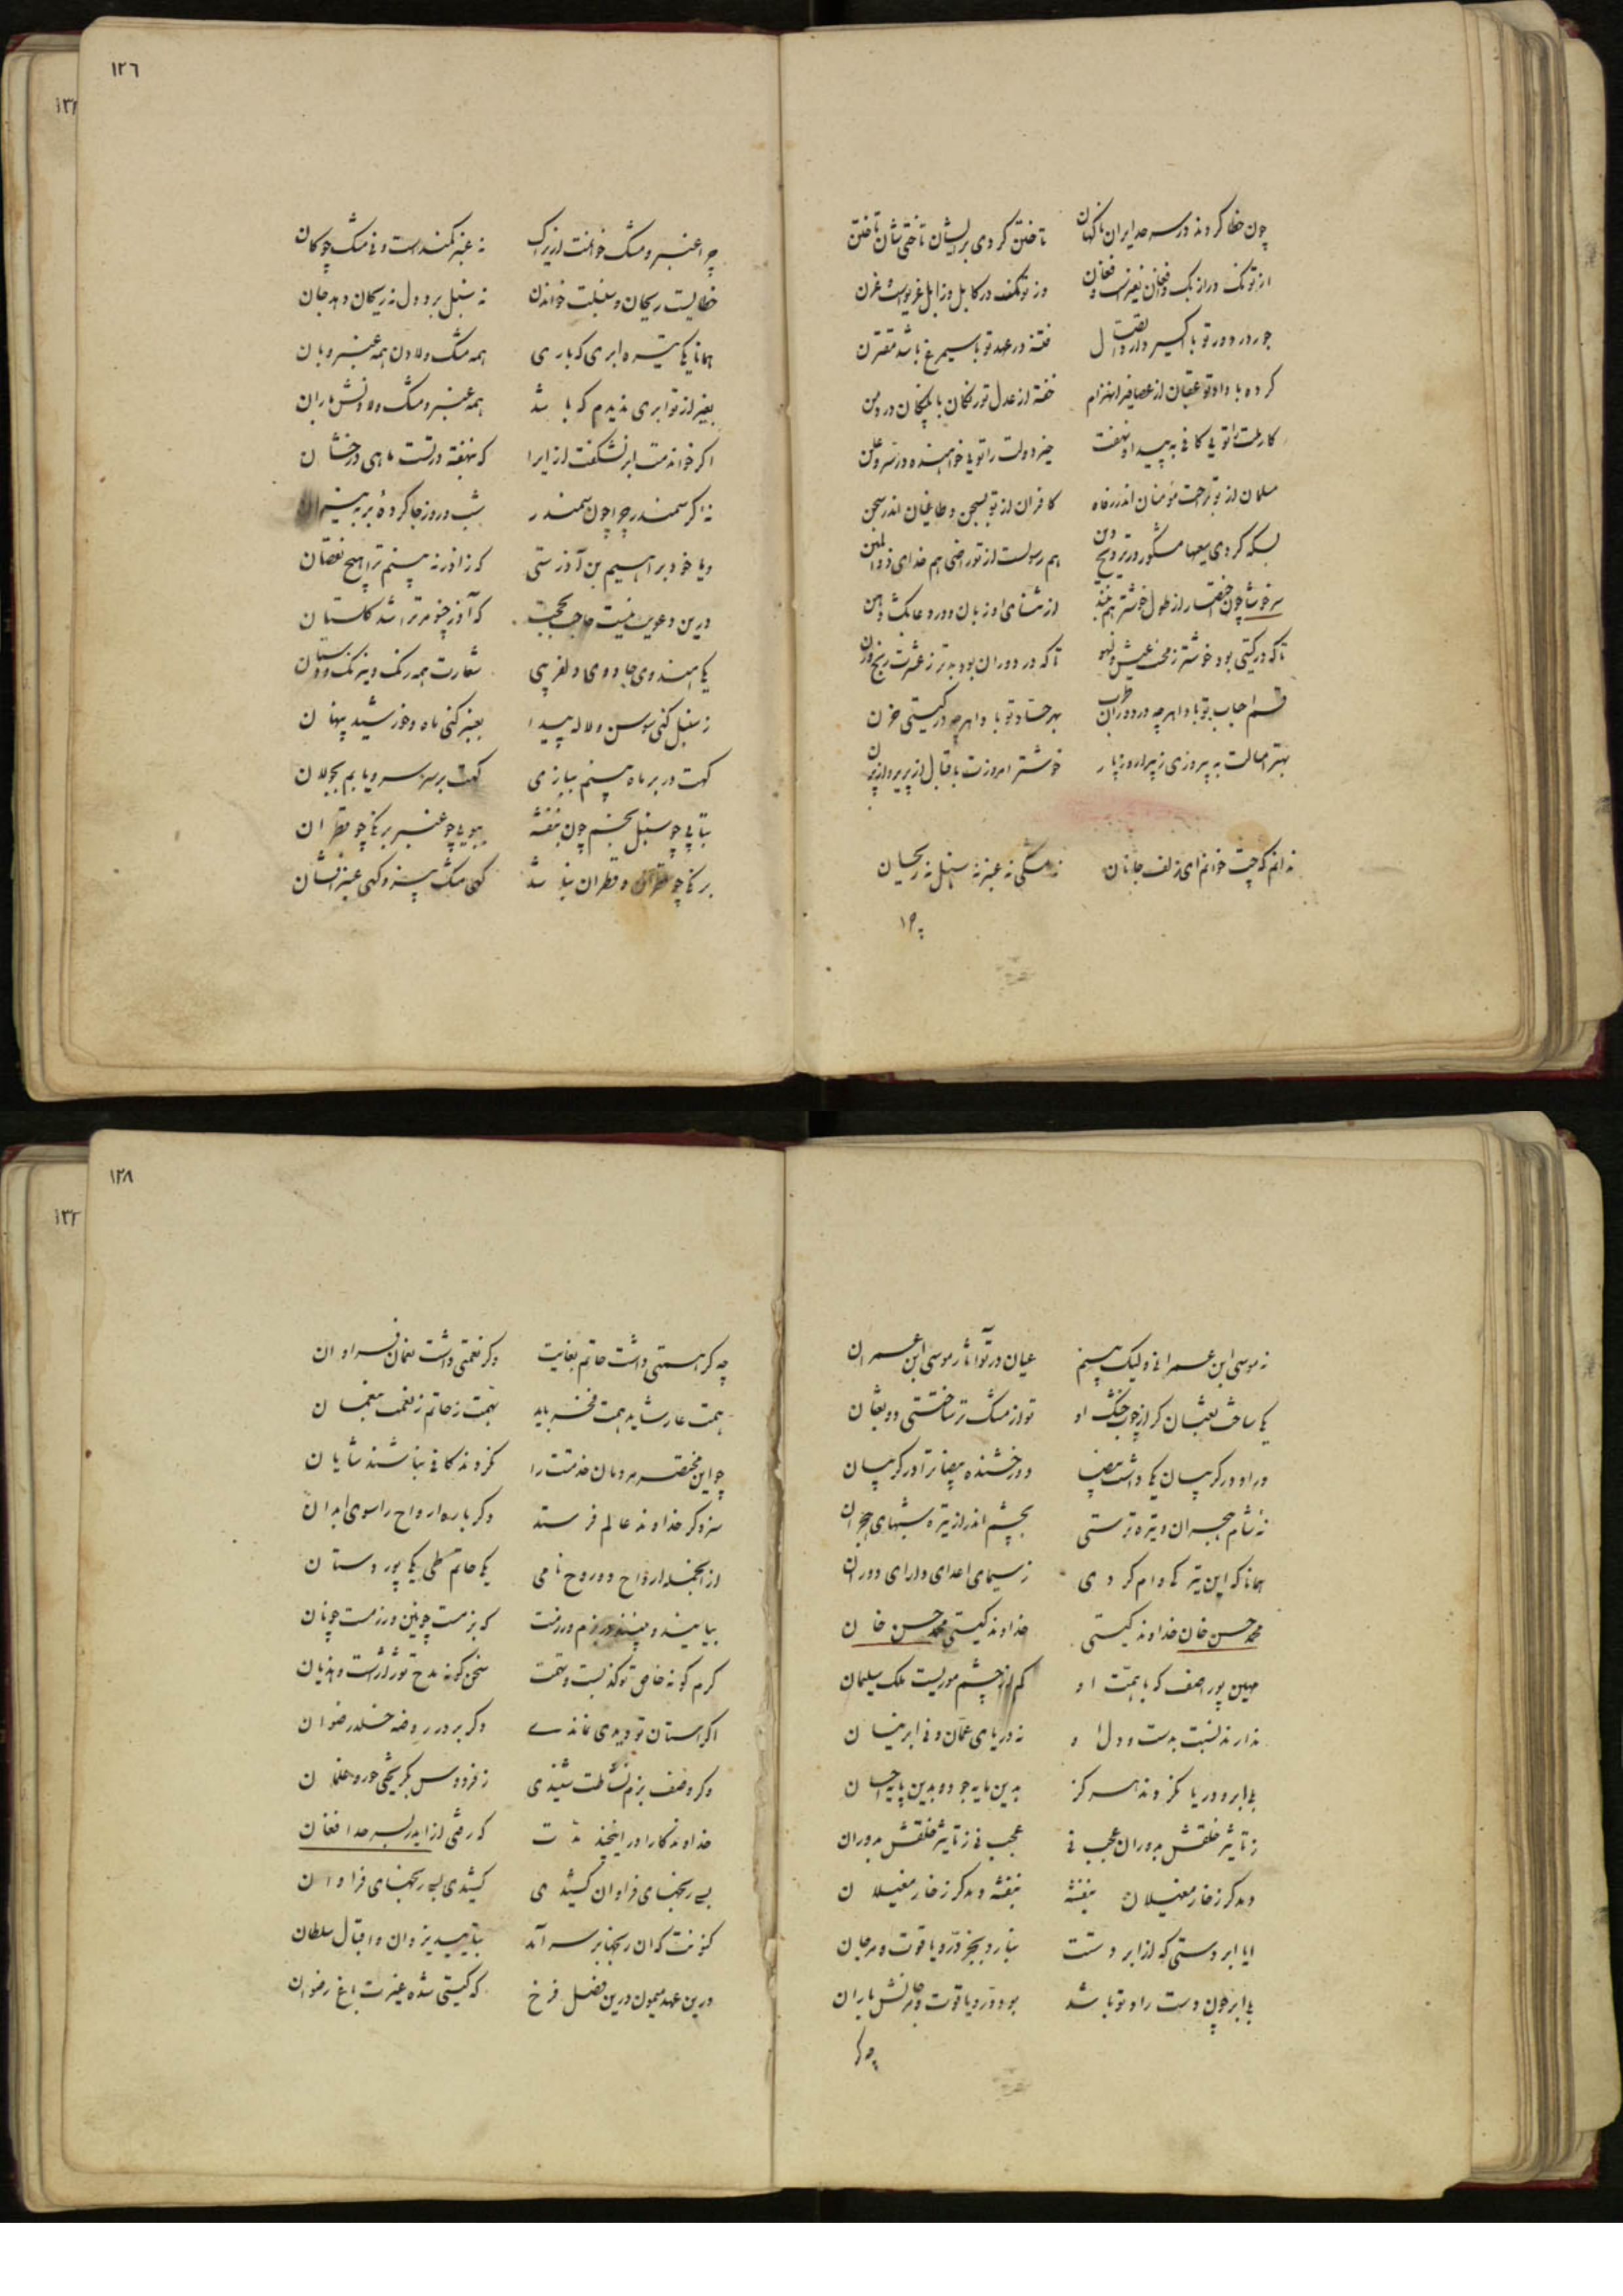 چون خطا کردند در سرحد ایران ناگهان تاختن کردی برایشان تاختی شان تاختن
از تو تگ در ازبک و افغان نفیرست و فغان وز تو در کابل و زابل غریوست و غرن
جور در دور تو با اکسیر دارد اتصال فتنه در عهد تو با سیمرغ باشد مقترن
کرده با داد تو عقبان از عصافیر انهزام خفته از عدل تو رنگان با پلنگان در دمن
کار ملت را تویی کافی به پیدا و نهفت خیر دولت را تویی خواهنده در سر و علن
مسلمان از تو براحت مؤمنان اندر رفاه کافران از تو بسجن و طاغیان اندر سجن
بسکه کردی سعیها مشکور در ترویج دین هم رسولت از تو راضی هم خدای ذوالمنن
سرخوشا چون اختصار از طول خوشتر هم ببند از ثنای او زبان و در دعا بگشا دهن
تا که در گیتی بود خوشتر ز محنت عیش و لهو تا که در دوران بود بدتر ز عشرت رنج و
قسم احباب تو بادا هر چه در دوران طرب بهر حساد تو بادا هر چه در گیتی حزن
بهتر امسالت به پیروزی ز پیرار و ز پار خوشتر امروزت باقبال از پریر و از پرن
ندانم که چت خوانم ای زلف جانان نه مشکی نه عنبر نه سنبل نه ریحان
چرا
١٢٦
چرا عنبر و مشک خوانمت ازیراک نه عنبر کمندست و نی مشک چوکان
خطایست ریحان و سنبلت خواندن نه سنبل برد دل نه ریحان دهد جان
همانا یکی تیره ابری که باری همه مشک و لادن همه عنبر و بان
بغیر از تو ابری ندیدم که باشد همه عنبر و مشک و لادنش باران
اگر خواندمت ابر نشگفت ازیرا که بنهفته در تست ماهی درخشان
نه اگر سمندر چرا چون سمندر شب و روز جا کردهٔ بر به نیران
و یا خود براهیم بن آذرستی که ز آذر نه بینم ترا هیچ نقصان
درین دعویت نیست حاجب بحجت که آذر چنو مر ترا شد گلستان
یکی هندوی جادوی دلفریبی شعارت همه رنگ و نیرنگ و دستان
ز سنبل کنی سوسن و لاله پیدا بعنبر کنی ماه و خورشید پنهان
گهت در بر ماه بینم ببازی گهت بر سر سرو یابم بجولان
بتابی چو سنبل بخم چون بنفشه ببویی چو عنبر برنگی چو قطران
برنگی چو قطران و قطران نباشد گهی مشک بیز و گهی عنبر افشان
نه موسی ابن عمرانی و لیک بینم عیان در تو آثار موسی ابن عمران
یکی ساخت ثعبان گر از چوب خشک او تو از مشک تر ساختستی دو ثعبان
ور او در گریبان یکی داشت بیضا دو رخشنده بیضا ترا در گریبان
نه شام هجران و تیره ترستی بچشم اندر از تیره شبهای هجران
همانا که این تیرگی وام کردی ز سیمای اعدای دارای دوران
محمد حسن خان خداوند گیتی خداوند گیتی محمد حسن خان
مهین پور آصف که با همت او کم از چشم موریست ملک سلیمان
ندارند نسبت بدست و دل او نه دریای عمان و نی ابر نیسان
بلی ابر و دریا نکردند هرگز بدین مایه جود و بدین پایه احسان
ز تأثیر خلقش بدوران عجب نی عجب نی ز تأثیر خلقش بدوران
دمد گر ز خار مغیلان بنفشه بنفشه دمد گر ز خار مغیلان
ایا ابر دستی که از ابر دستت نبارد بجز در و یاقوت و مرجان
بلی ابر چون دست راد تو باشد بود در و یاقوت و مرجانش باران
چه گر
١٢٨
چه گر همتی داشت حاتم بغایت وگر نعمتی داشت نعمان فراوان
همت عار شاید همت فخر باید بهمت ز حاتم ز نعمت ز نعمان
چو این مختصر مردمان خدمتت را نکردند کافی نباشند شایان
سزد گر خداوند عالم فرستد دگر باره ارواح را سوی ابدان
از آنجمله ارواح دو روح نامی یکی حاتم طی یکی پور دستان
بیایند و بینند در بزم و رزمت که بزمت چونین و رزمت چونان
کرم گو نه خاص تو کذبست و تهمت سخن گو نه مدح تو ژاژست و هذیان
اگر آستان تو دیدی نماندی دگر بر در روضه خلد رضوان
وگر وصف بزم نشاطت شنیدی ز فردوس بگریختی حور و غلمان
خداوندگارا در این چند مدت که رفتی از ایدر بسرحد افغان
بسی رنجهای فراوان کشیدی کشیدی بسی رنجهای فراوان
کنونت که آن رنجها بر سر آمد بتأیید یزدان و اقبال سلطان
درین عهد میمون درین فصل فرخ که گیتی شده غیرت باغ رضوان